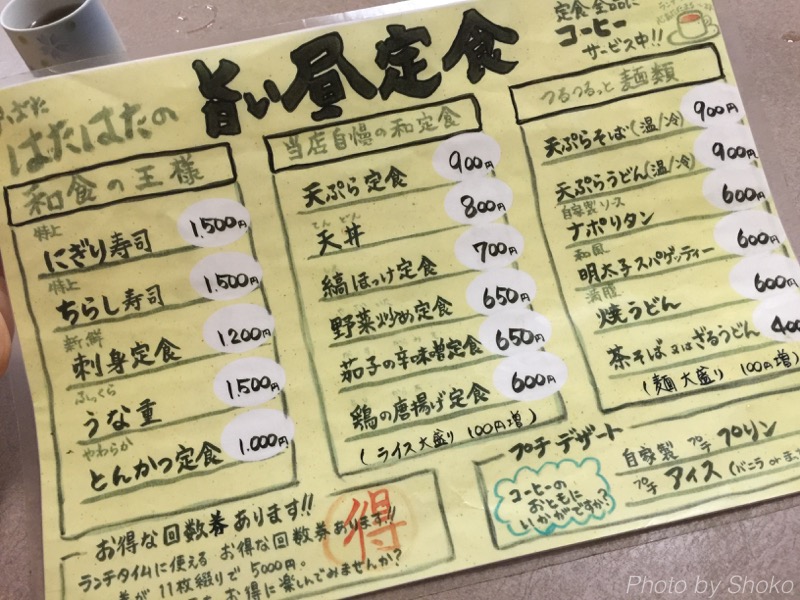 はたはたの
旨い昼定食
定食全品に
コーヒー
サービス中!!
和食の王様
特上
にぎり寿司 1,500円
特上
ちらし寿司 1,500円
新鮮
刺身定食 1,200円
ふっくら
うな重 1,500円
やわらか
とんかつ定食 1,000円
当店自慢の和定食
天ぷら定食 900円
てんどん
天丼 800円
縞ほっけ定食 700円
野菜炒め定食 650円
茄子の辛味噌定食 650円
鶏の唐揚げ定食 600円
(ライス大盛り 100円増)
つるつるっと麺類
天ぷらそば(温/冷) 900円
天ぷらうどん(温/冷) 900円
自家製ソース
ナポリタン 600円
和風
明太子スパゲッティー 600円
満腹
焼うどん 600円
茶そば又はざるうどん 400
(麺大盛り 100円増)
プチデザート
コーヒーの
おともに
いかがですか?
自家製 プチ プリン
プチ アイス (バニラ or
お得な回数券あります!!
ランチタイムに使える お得な回数券あります!!
券が11枚綴りで5000円。
お得に楽しんでみませんか?
得
Photo by Shoko